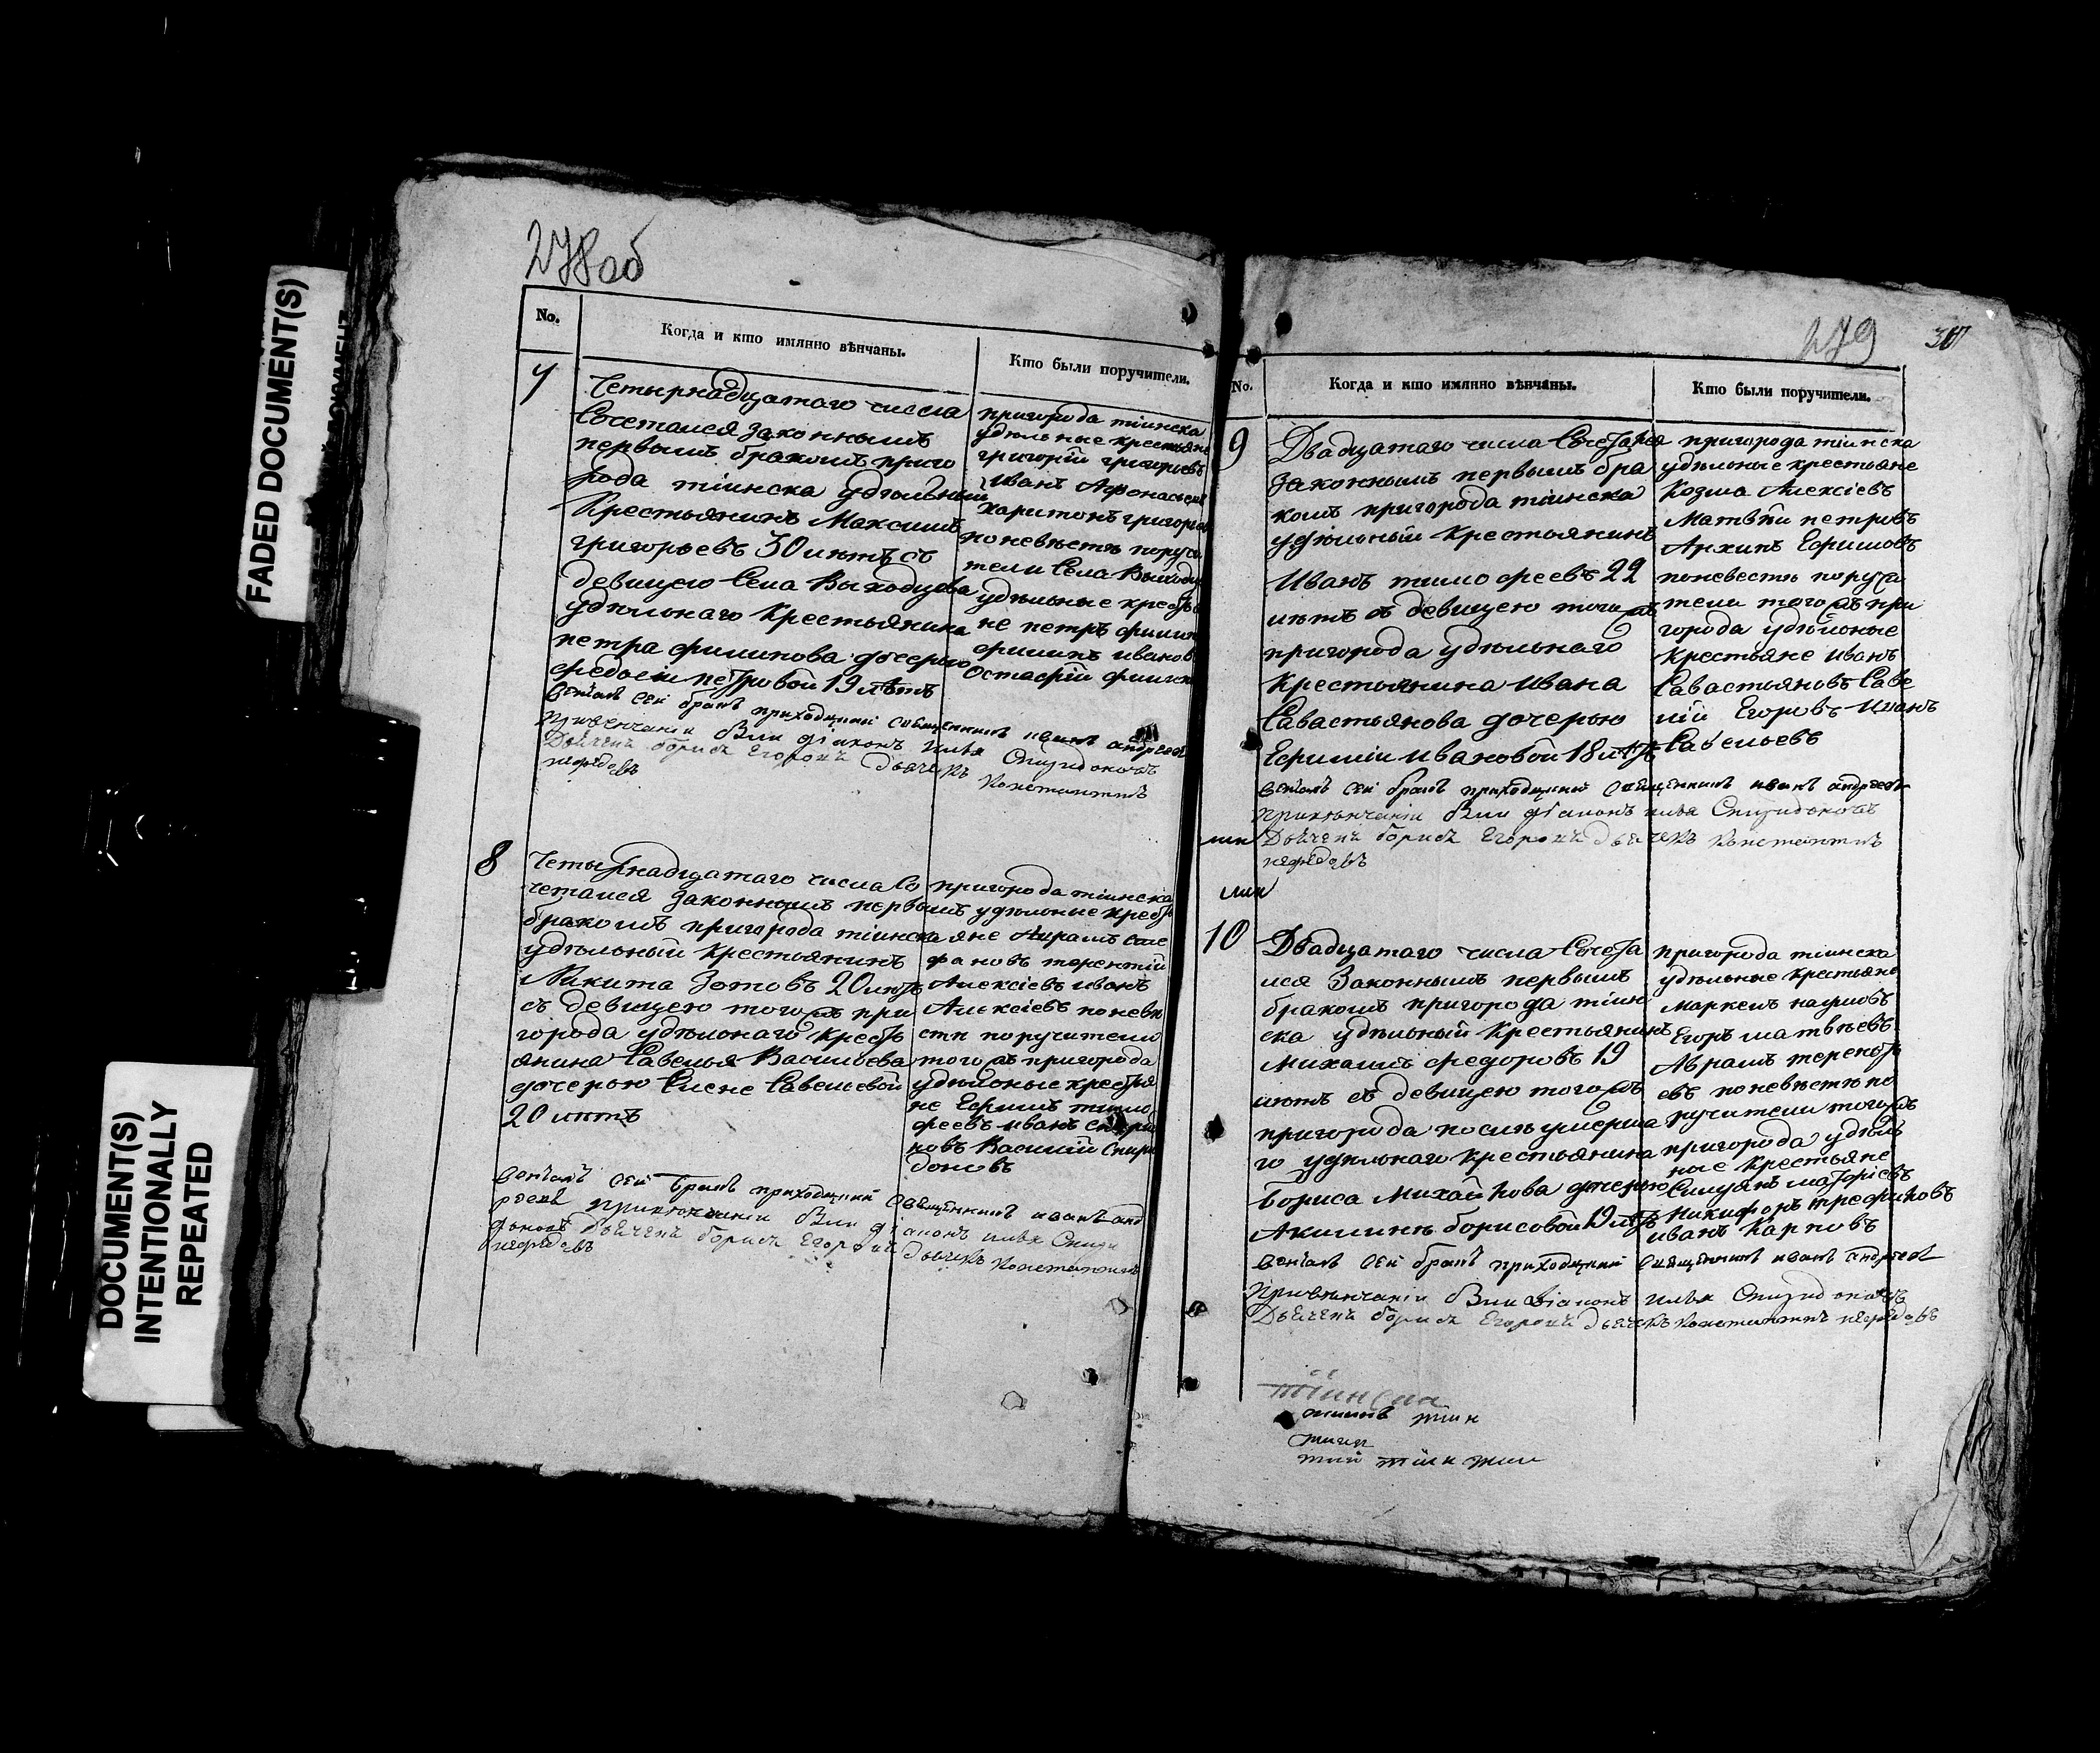 FADED DOCUMENT(S)
DOCUMENT(S)
INTENTIONALLY
REPEATED
278 об
No.
Когда и кто имянно вѣнчаны.
Кто были поручители.
7
Четырнадцатаго числа
Сочетался законнымъ
первымъ бракомъ приго
рода тіинска удѣльный
Крестьянинъ Максимъ
григорьевъ 30 лѣтъ съ
девицею Села Выходцева
удѣльнаго Крестьянина
петра филипова дочерью
федосьи петровой 19 лѣтъ
пригорода тіинска
удѣльные крестьяне
григорій григорьевъ
иванъ Афонасьевъ
харитонъ григорьев
поневѣсте поручи
тели Села Выходц
удѣльные крестья
не петръ филип
филипъ иванов
Остафій филип
венчалъ сей бракъ приходцкий священникъ иванъ андреевъ
привенчаніи были діаконъ илья Спиридоновъ
Дьячекъ борисъ Егоровъ дьячекъ Константинъ
нефедовъ
8
Четырнадцатаго числа Со
четался законнымъ первымъ
бракомъ пригорода тіинска
удѣльный крестьянинъ
Никита Зотовъ 20 лѣтъ
съ девицею тогожъ при
города удѣльнаго кресть
янина Савелья Васильева
дочерью Елене Савельевой
20 лѣтъ
пригорода тіинска
удѣльные кресть
яне Авраамъ сте
фановъ терентій
Алексіевъ иванъ
Алексіевъ поневѣ
сти поручители
тогожъ пригорода
удѣльные крестья
не Ефимъ тимо
феевъ иванъ спири
новъ Василій спири
доновъ
венчалъ сей бракъ приходцкий священникъ иванъ анд
реевъ привенчаніи были діаконъ илья Спири
доновъ дьячекъ борисъ Егоровъ дьячекъ Константинъ
нефедовъ
279
No.
Когда и кто имянно вѣнчаны.
Кто были поручители.
9
Двадцатаго числа Сочетался
законнымъ первымъ бра
комъ пригорода тіинска
удѣльный Крестьянинъ
Иванъ тимофеевъ 22
лѣтъ съ девицею тогожъ
пригорода удѣльнаго
крестьянина ивана
Савастьянова дочерью
Ефиміи ивановой 18 лѣтъ
пригорода тіинска
удѣльные крестьяне
Козма Алексіевъ
Матвѣй петровъ
Архипъ Ефимовъ
поневесте поручи
тели тогожъ при
города удѣльные
крестьяне иванъ
Савастьяновъ Саве
лій Егоровъ иванъ
Савельевъ
венчалъ сей бракъ приходцкий священникъ иванъ андреевъ
привѣнчаніи были діаконъ илья Спиридоновъ
Дьячекъ борисъ Егоровъ дьячекъ Константинъ
нефедовъ
10
Двадцатаго числа Сочета
лся Законнымъ первымъ
бракомъ пригорода тіин
ска удѣльный крестьянинъ
михаилъ федоровъ 19
лѣтъ съ девицею тогожъ
пригорода послѣ умерша
го удѣльнаго крестьянина
бориса михайлова дочерью
Акилинѣ борисовой 19 лѣтъ
пригорода тіинска
удѣльные крестьяне
маркелъ наумовъ
Егоръ матвѣевъ
Аврамъ теренть
евъ поневѣсте по
ручители тогожъ
пригорода удѣль
ные крестьяне
никифоръ трефиловъ
иванъ Карповъ
венчалъ сей бракъ приходцкий священникъ иванъ андреевъ
привѣнчаніи были діаконъ илья Спиридоновъ
Дьячекъ борисъ Егоровъ дьячекъ Константинъ нефедовъ
тіинска
тіин